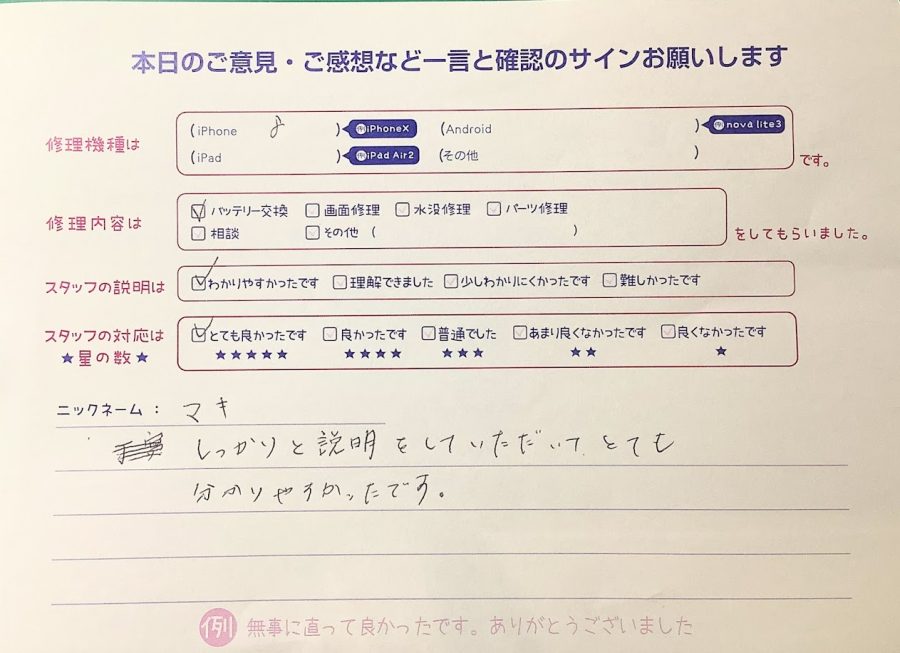 本日のご意見・ご感想など一言と確認のサインお願いします
修理機種は
(iPhone 8 ) 例 iPhoneX (Android ) 例 nova lite3
(iPad ) 例 iPad Air2 (その他 ) です。
修理内容は
バッテリー交換 画面修理 水没修理 パーツ修理
相談 その他 ( ) をしてもらいました。
スタッフの説明は わかりやすかったです 理解できました 少しわかりにくかったです 難しかったです
スタッフの対応は とても良かったです 良かったです 普通でした あまり良くなかったです 良くなかったです
★星の数★ ★★★★★ ★★★★ ★★★ ★★ ★
ニックネーム： マキ
しっかりと説明をしていただいてとても
分かりやすかったです。
例 無事に直って良かったです。ありがとうございました